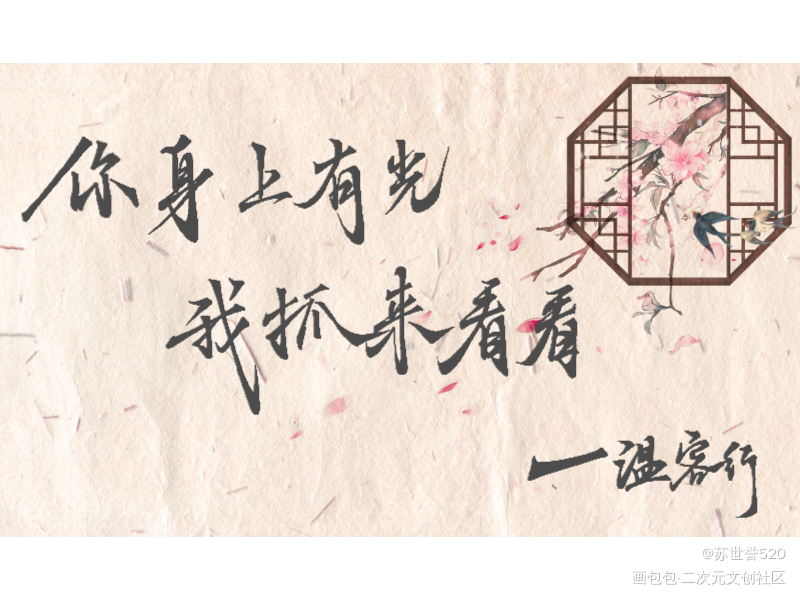 你身上有光
我抓来看看
一温客行
@苏世誉520
画包包·二次元文创社区